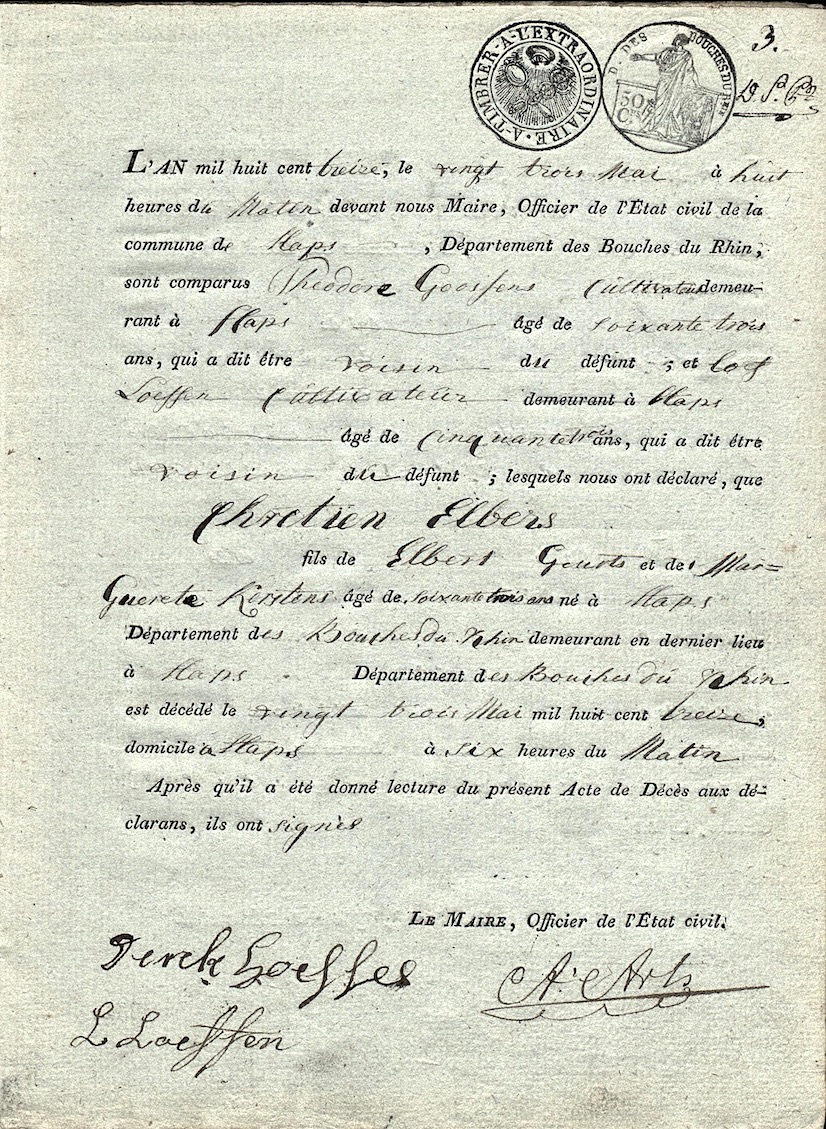 A-TIMBRER-A-L'EXTRAORDINAIRE
D. DES BOUCHES DU RHIN
50 C.
3.
L'AN mil huit cent treize, le vingt trois Mai à huit
heures du Matin devant nous Maire, Officier de l'État civil de la
commune de Haps, Département des Bouches du Rhin,
sont comparus Théodore Goossens Cultivateur demeu-
rant à Haps âgé de soixante trois
ans, qui a dit être voisin du défunt ; et
Loeffen Cultivateur demeurant à Haps
âgé de cinquante trois ans, qui a dit être
voisin du défunt ; lesquels nous ont déclaré, que
Chretien Elbers
fils de Elbert Geurts et de Mar=
Guerete Kerstens âgé de soixante trois ans né à Haps
Département des Bouches du Rhin demeurant en dernier lieu
à Haps. Département des Bouches du Rhin
est décédé le vingt trois Mai mil huit cent treize,
domicile à Haps à six heures du Matin
Après qu'il a été donné lecture du présent Acte de Décès aux dé-
clarans, ils ont signés
LE MAIRE, Officier de l'État civil.
Derck
A. Arts
L Loeffen